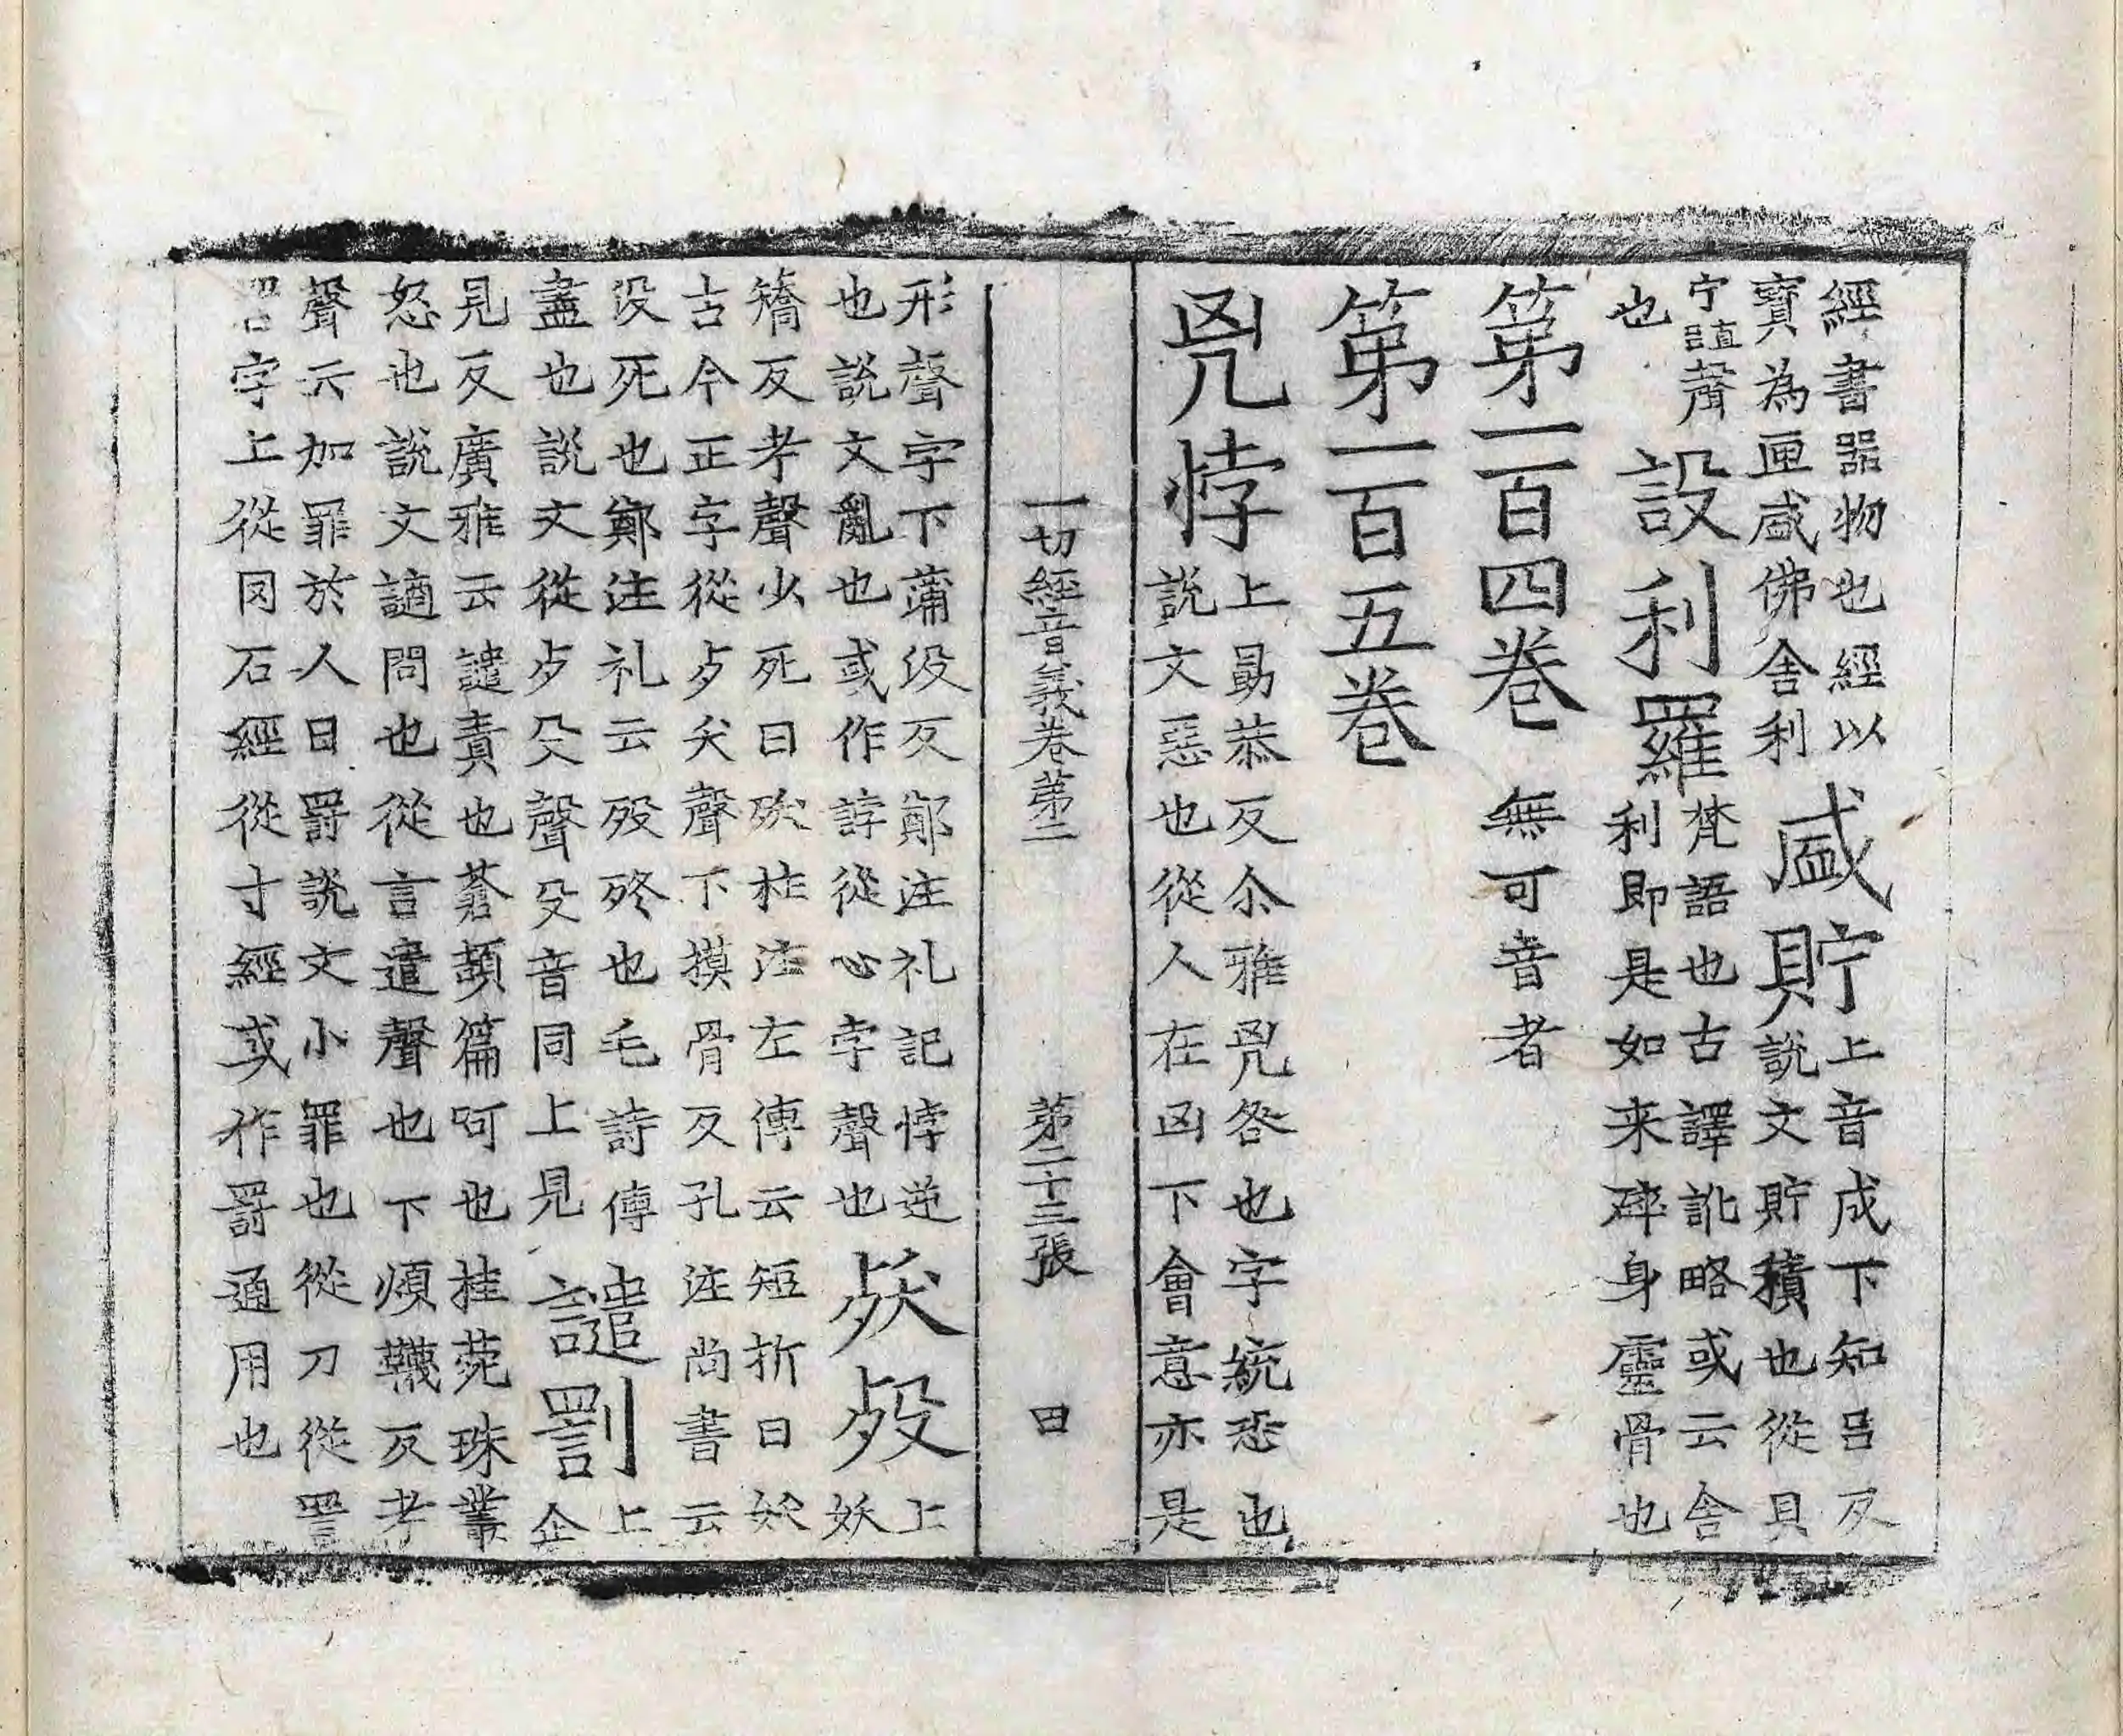 經書器物也經以
寶為匣盛佛舍利
盛貯
上音成下知呂反
說文貯積也從貝
宁聲
也
設利羅
梵語也古譯訛略或云舍
利即是如来碎身靈骨也
第一百四卷 無可音者
第一百五卷
兇悖
上勗恭反尒雅兇咎也字統恐也
說文惡也從人在凶下會意亦是
一切經音義卷第二 第二十三張 田
形聲字下蒲沒反鄭注礼記悖逆
也說文亂也或作誖從心孛聲也
殀歿
上
妖
矯反考聲少死曰殀杜注左傳云短折曰妖
古今正字從歹夭聲下摸骨反孔注尚書云
沒死也鄭注礼云歿終也毛詩傳
盡也說文從歹𠬛聲𠬛音同上見
譴罰
上
企
見反廣雅云譴責也蒼頡篇呵也桂菀珠叢
怒也說文讁問也從言遣聲也下煩韈反考
聲云加罪於人曰罸說文小罪也從刀從詈
字上從冈石經從寸經或作罸通用也